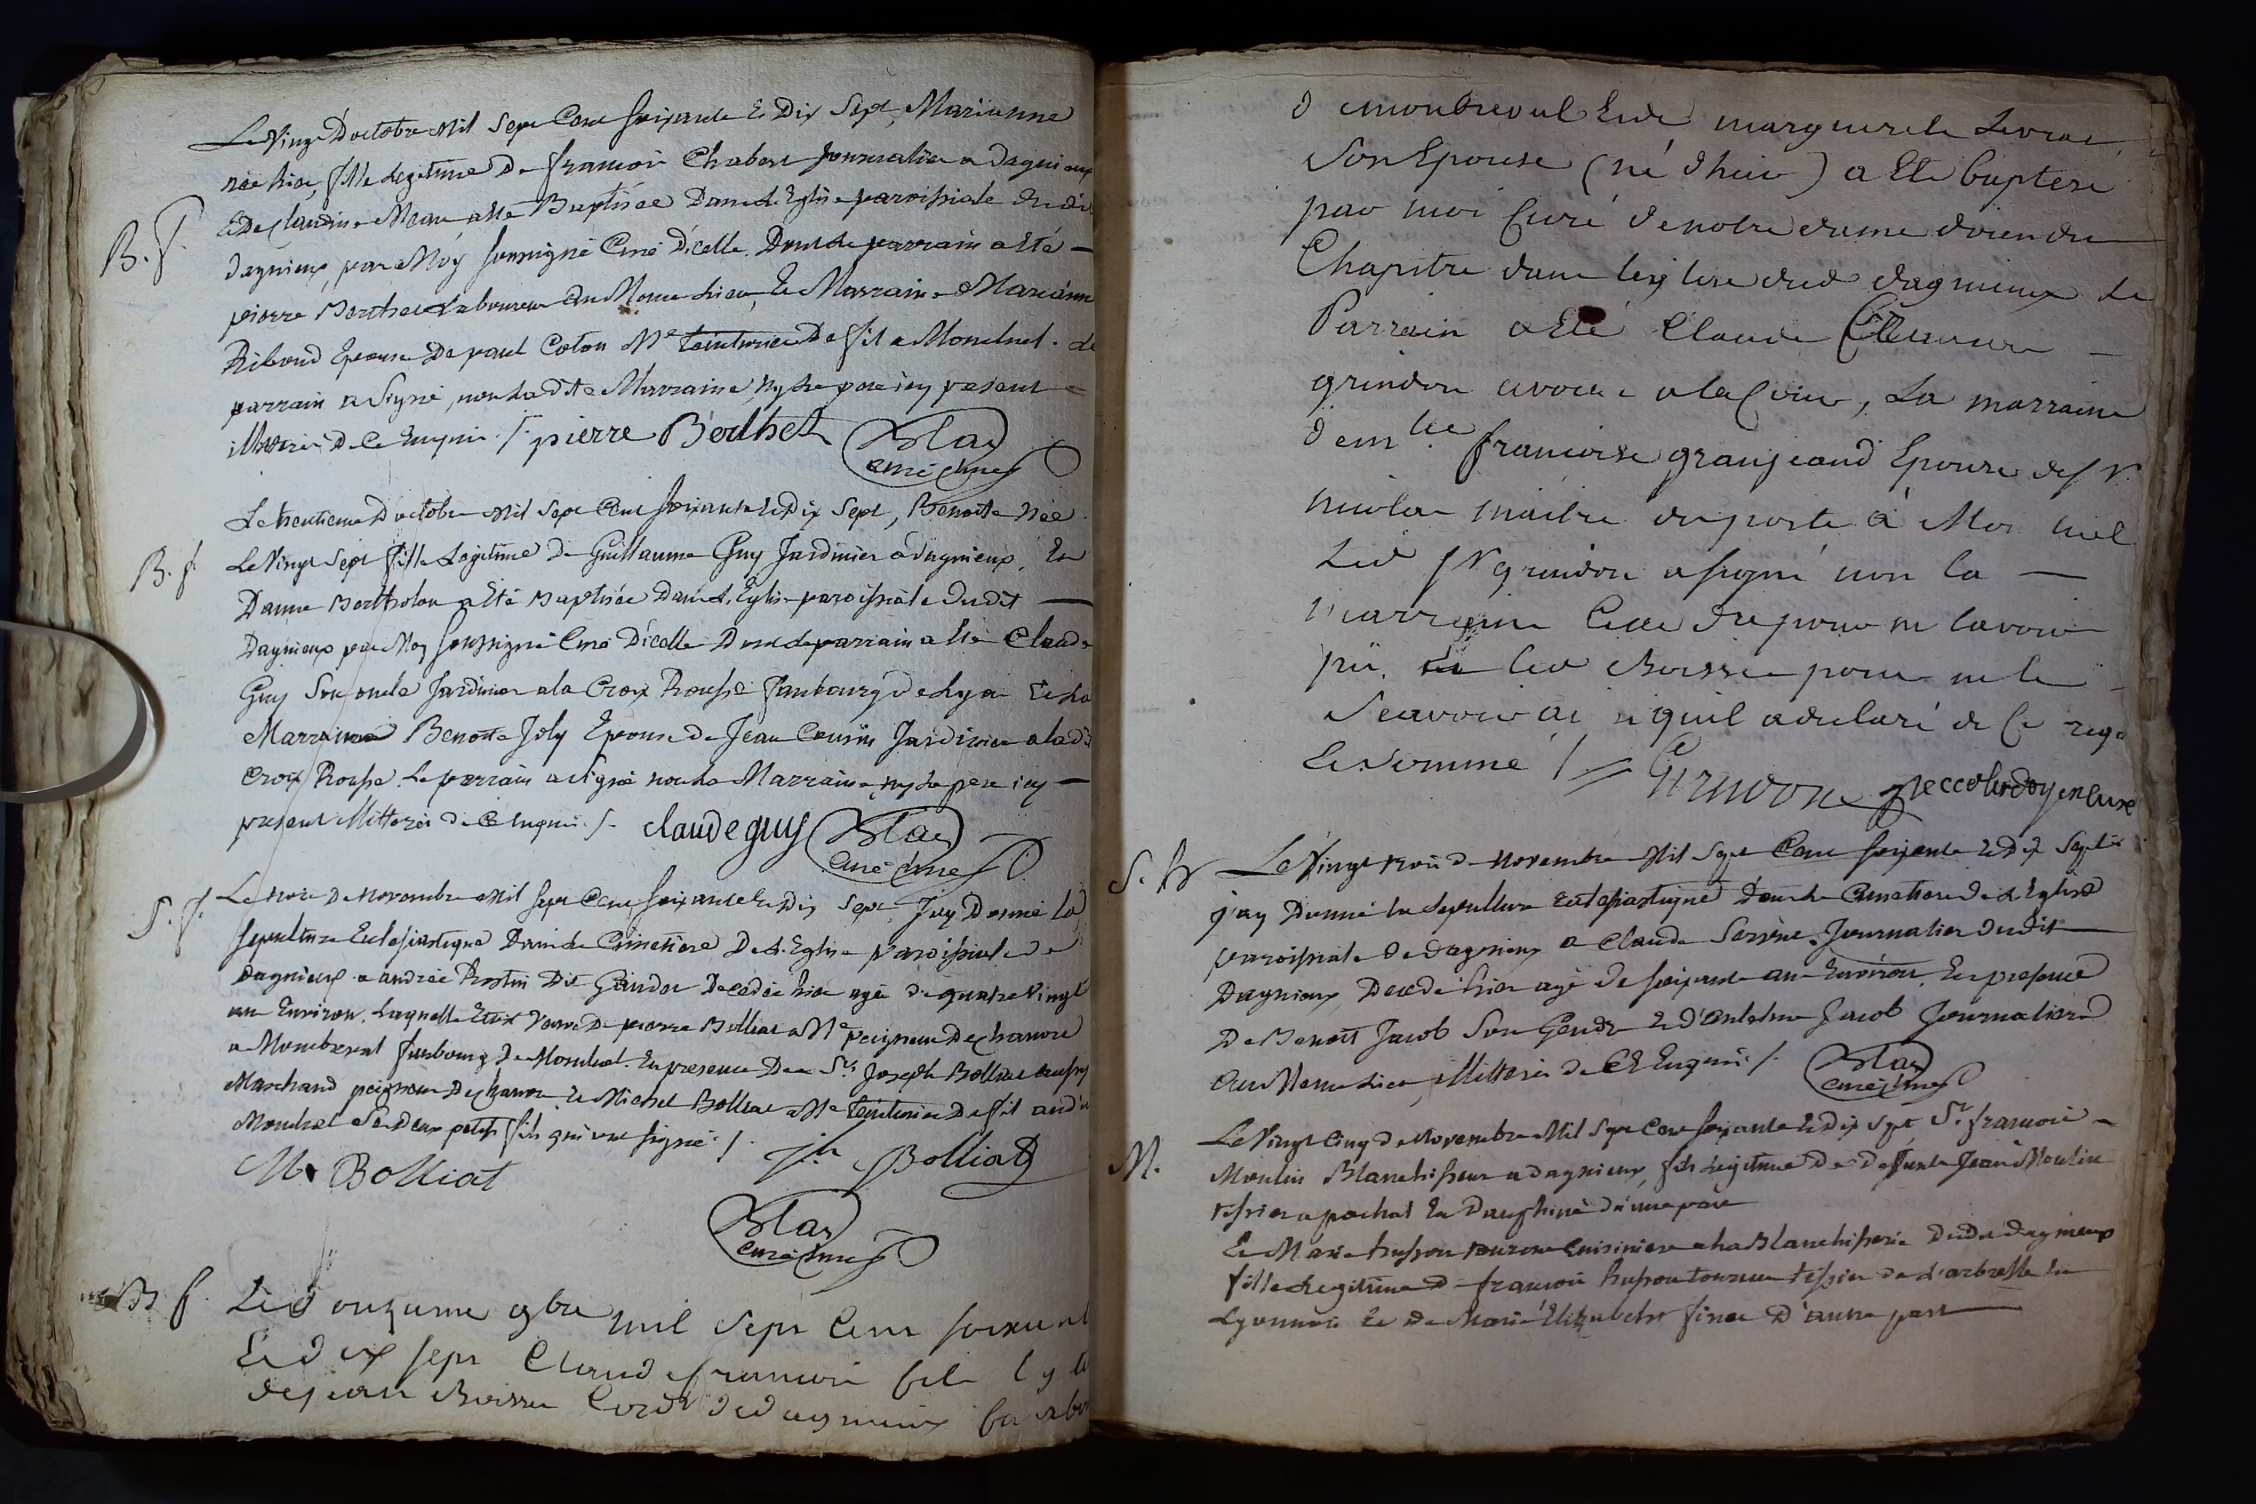 Le Vingt D'octobre Mil Sept Cent soixante Et Dix Sept, Marianne
née hier, fille Legitime De françois Chabert Journalier a Dagnieux
B. f.
Et De Claudine Mean, a été Baptisée Dans L'Eglise paroissiale Dudit
Dagnieux, par Moy soussigné Curé D'icelle. Dont Le parrain a Eté
pierre Berthet Laboureur Du Meme Lieu, Et Marraine Marianne
Riboud Epouse De paul Coton Me teinturier De fil a Monluel. Le
parrain a Signé, non Ladite Marraine, Ny Le pere icy present
illitterés De Ce Enquis ./. pierre Berthet Blas
curé dagnes
Le trentieme D'octobre Mil Sept Cent soixante Et Dix Sept, Benoite Née
B. f.
Le Vingt Sept fille Legitime De Guillaume Guy Jardinier a Dagnieux, Et
D'anne Bertholon a Eté Baptisée Dans L'Eglise paroissiale Dudit
Dagnieux par Moy soussigné Curé D'icelle Dont Le parrain a Eté Claude
Guy Son oncle Jardinier a la Croix Rousse faubourg De Lyon Et La
Marraine Benoite Joly Epouse De Jean Cousin Jardinier a ladite
Croix Rousse. Le parrain a Signé non La Marraine, ny Le pere icy
present illitterés de Ce Enquis ./. claude guy Blas
S. f.
Le trois De Novembre Mil Sept Cent soixante Et Dix Sept, J'ay Donné La
sepulture Eclesiastique Dans Le Cimetiere De L'Eglise paroissiale De
Dagnieux a andrée Dit Decedée hier agée de quatre Vingt
ans Environ. Laquelle Etoit Veuve De pierre Bolliat Me peigneur De chanvre
a Monbreval faubourg De Monluel. En presence Des Srs Joseph Bolliat aussy
Marchand peigneur De chanvre Et Michel Bolliat Me teinturier De fil audit
Monluel Ses Deux petits fils qui ont signé ./.
M. Bolliat Jh Bolliat
Blas
B. f.
Le d'onzieme 9bre mil Sept Cent soixante
Et dix sept Claude francois fils lgt
de jean Boissu Cord de dagnieux
de monbreval Et de marguerite
Son Epouse (né d'hier) a Eté baptisé
par moi Curé de notre dame doien du
Chapitre dans leglise dud dagnieux Le
Parrain a Eté Claude
grindon avocat a la Cour, La marraine
demlle francoise grangeand Epouse du Sr
nicolas maitre du poste à Monluel
Led Sr grindon a signé non la
marraine
pü, ni led Boissu pour ne le
Scavoir ainsi quil a declaré de ce req
Et Sommé ./. Grindon doyen curé
S. h.
Le Vingt trois de Novembre Mil Sept Cent soixante Et Dix Sept
j'ay Donné La Sepulture Eclesiastique Dans Le Cimetiere De L'Eglise
paroissiale De Dagnieux a Claude Journalier Dudit
Dagnieux Decedé hier agé De soixante ans Environ. En presence
De Benoit Jacob Son Gendre Et D'Antelme Jacob Journaliers
Au Meme Lieu, illitterés de Ce Enquis ./. Blas
M.
Le Vingt Cinq De Novembre Mil Sept Cent soixante Et Dix Sept Sr francois
Moulin Blanchisseur a Dagnieux, fils Legitime De Defunt Jean Moulin
tissier a En Dauphiné D'une part
Et Marie Cuisiniere a la Blanchisserie Dudit Dagnieux
fille Legitime De francois tissier De L'arbresle En
Lyonnois Et De Marie Elizabeth D'autre part